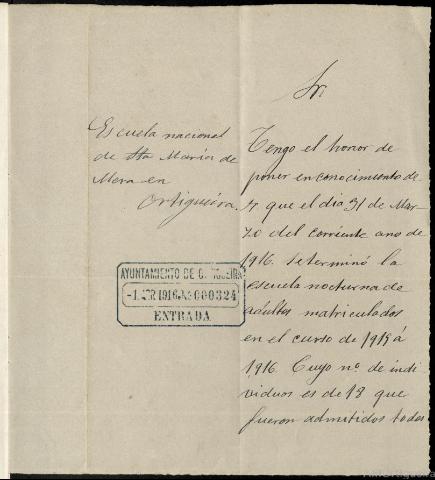 Escuela nacional
de Sta María de
Mera en
Ortigueira.
AYUNTAMIENTO DE O. TIGUEIRA
-1. ABR 1916 ★ 000324
ENTRADA
Sr.
Tengo el honor de
poner en conocimiento de
V que el dia 31 de Mar-
zo del corriente ano de
1916. terminó la
escuela nocturna de
adultos matriculados
en el curso de 1915 á
1916. Cuyo nº. de indi
viduos es de 18 que
fueron admitidos todos